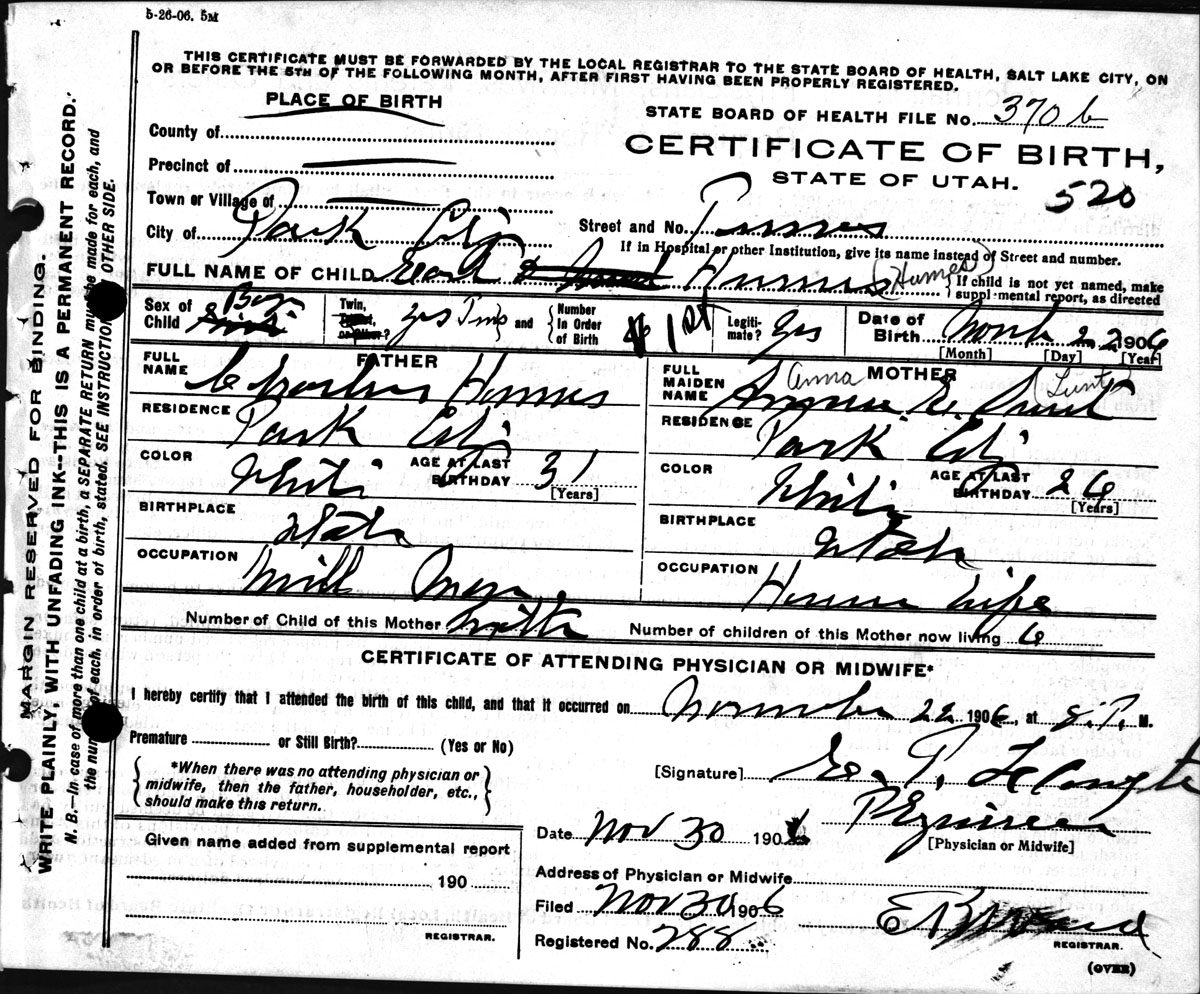 5-26-06. 5M
THIS CERTIFICATE MUST BE FORWARDED BY THE LOCAL REGISTRAR TO THE STATE BOARD OF HEALTH, SALT LAKE CITY, ON
OR BEFORE THE 5TH OF THE FOLLOWING MONTH, AFTER FIRST HAVING BEEN PROPERLY REGISTERED.
PLACE OF BIRTH
STATE BOARD OF HEALTH FILE No. 370 b
County of
CERTIFICATE OF BIRTH,
Precinct of
STATE OF UTAH.
520
Town or Village of
City of Park City
Street and No.
If in Hospital or other Institution, give its name instead of Street and number.
FULL NAME OF CHILD Earl Humes (Humes)
If child is not yet named, make
suppl-mental report, as directed
Sex of Child Boy
Twin, yes Twins and
Number in Order of Birth 1st
Legiti-mate? Yes
Date of Birth 22 1906
[Month] [Day] [Year]
FATHER
FULL NAME Charles Humes
RESIDENCE Park City
COLOR White
AGE AT LAST BIRTHDAY 31
[Years]
BIRTHPLACE Utah
OCCUPATION Mill Man
MOTHER
FULL MAIDEN NAME Anna E. (Lunt)
RESIDENCE Park City
COLOR White
AGE AT LAST BIRTHDAY 26
[Years]
BIRTHPLACE Utah
OCCUPATION House Wife
Number of Child of this Mother
Number of children of this Mother now living 6
CERTIFICATE OF ATTENDING PHYSICIAN OR MIDWIFE*
I hereby certify that I attended the birth of this child, and that it occurred on November 22 1906, at 8. P. M.
Premature or Still Birth? (Yes or No)
*When there was no attending physician or
midwife, then the father, householder, etc.,
should make this return.
[Signature] E. P.
Date Nov 30 190
[Physician or Midwife]
Given name added from supplemental report
190
REGISTRAR.
Address of Physician or Midwife
Filed Nov 30 1906
Registered No. 288
REGISTRAR.
(OVER)
MARGIN RESERVED FOR BINDING.
WRITE PLAINLY, WITH UNFADING INK--THIS IS A PERMANENT RECORD.
N. B.—In case of more than one child at a birth, a SEPARATE RETURN must be made for each, and
the number of each, in order of birth, stated. SEE INSTRUCTIONS OTHER SIDE.